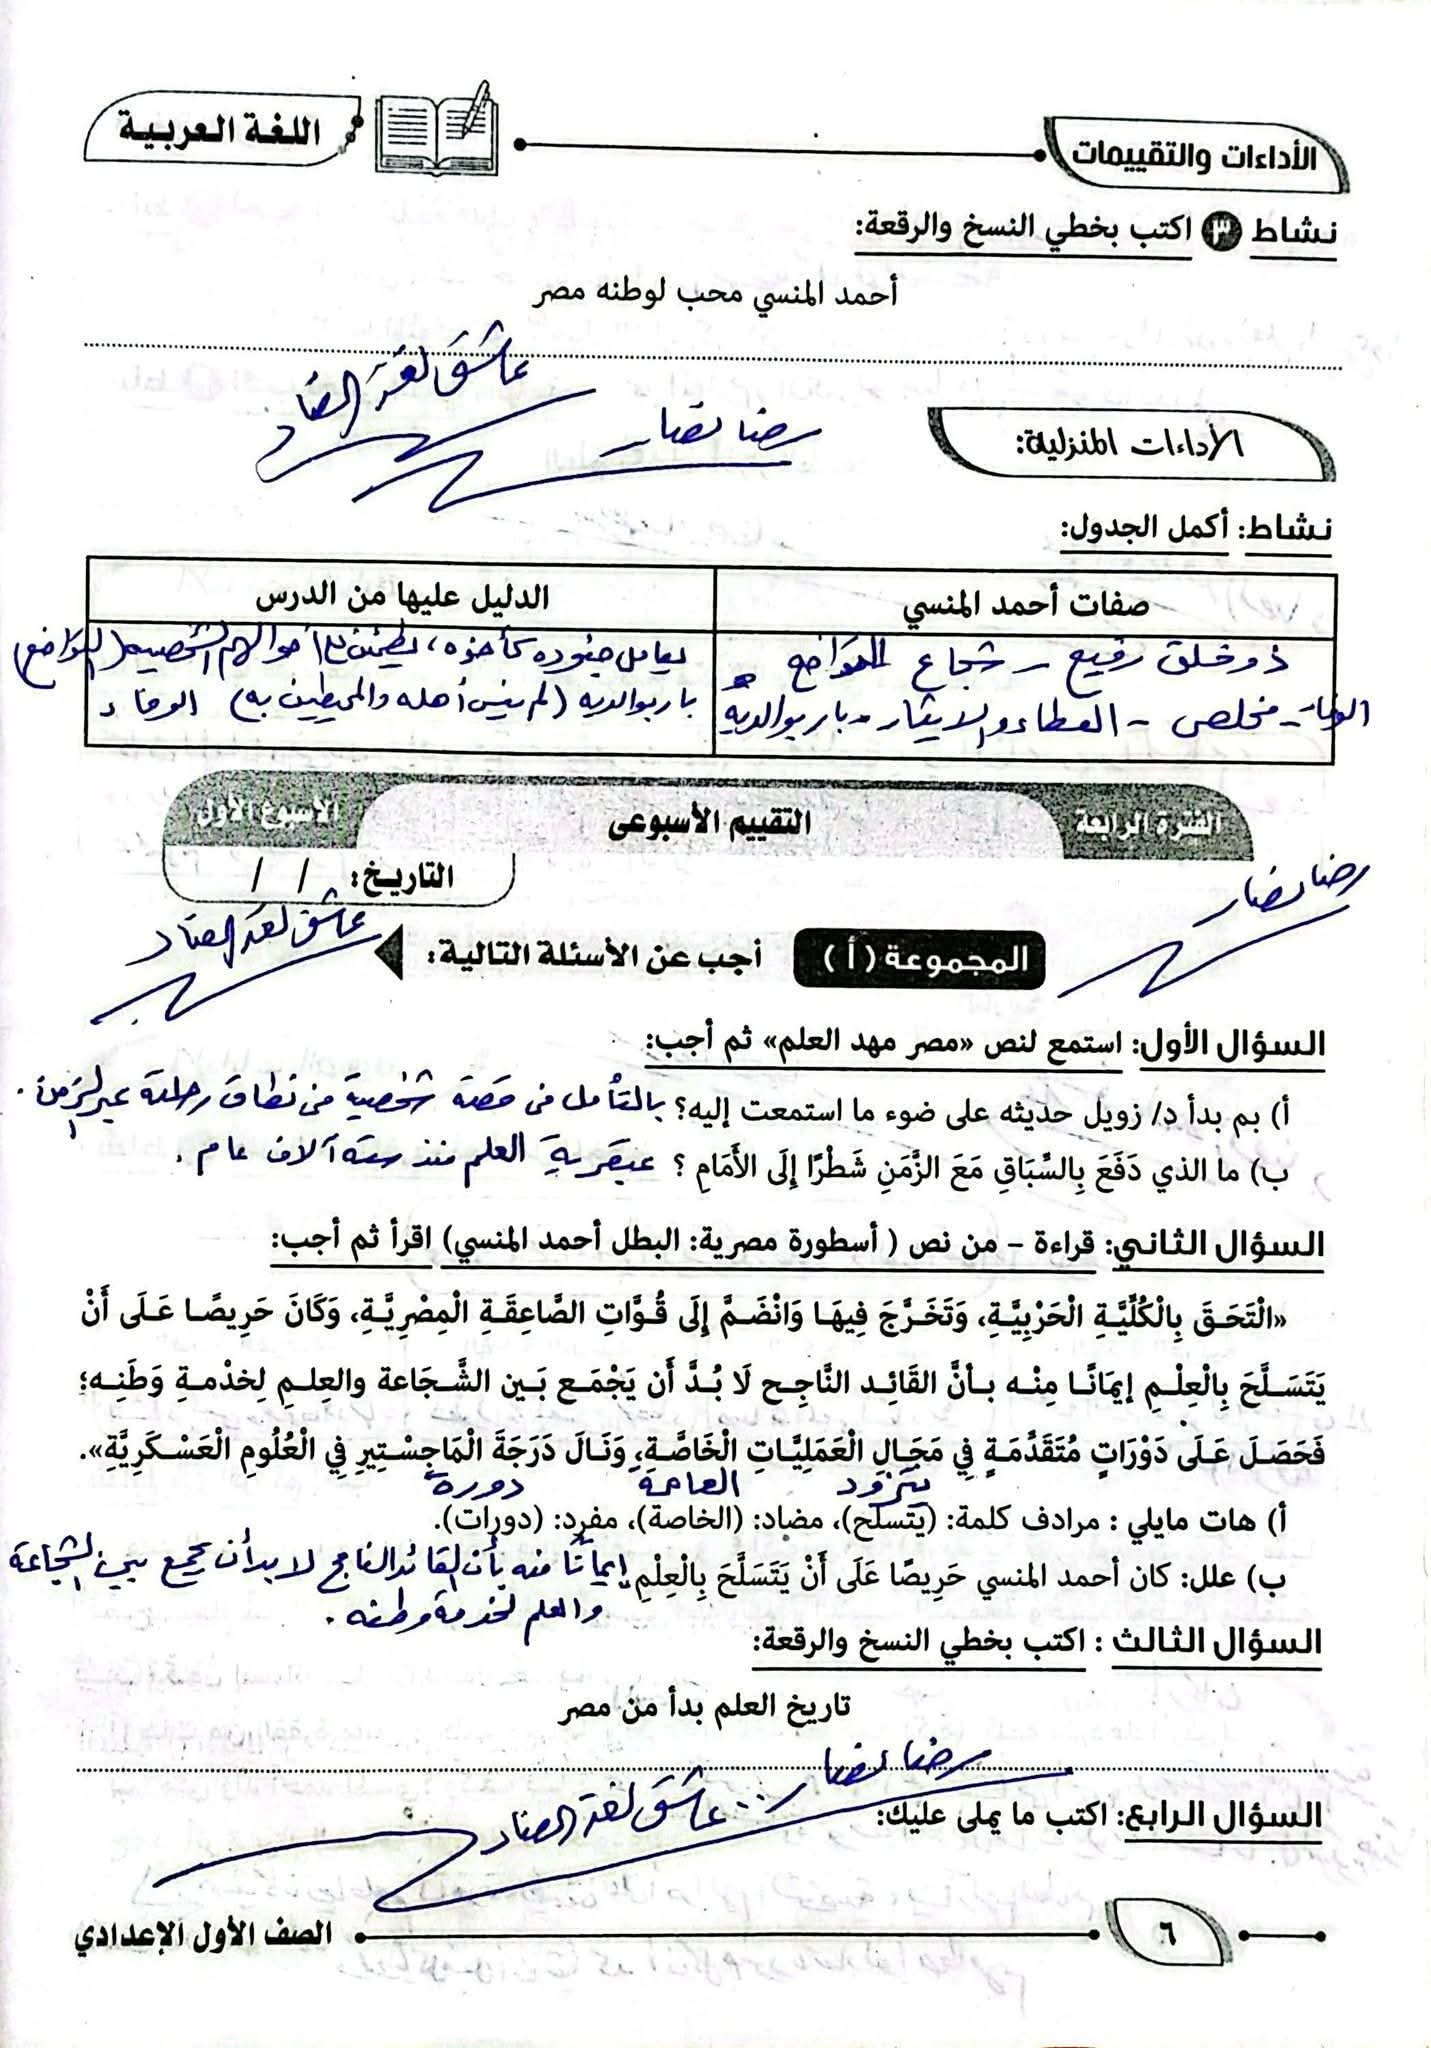 الأداءات والتقييمات
اللغة العربية
نشاط ٣ اكتب بخطي النسخ والرقعة:
أحمد المنسي محب لوطنه مصر
عاشق لغة الضاد
رضا نصار
الأداءات المنزلية:
نشاط: أكمل الجدول:
صفات أحمد المنسي
الدليل عليها من الدرس
ذو خلق رفيع - شجاع التواضع
الوفاء - مخلص - العطاء والإيثار - بار بوالديه
يعامل جنوده كأخوة، يطمئن على أحوالهم الشخصية (التواضع)
بار بوالديه (لم ينس أهله والمحيطين به) الوفاء
الفترة الرابعة
التقييم الأسبوعى
الأسبوع الأول
التاريخ: / /
رضا نصار
عاشق لغة الضاد
المجموعة (أ) أجب عن الأسئلة التالية:
السؤال الأول: استمع لنص «مصر مهد العلم» ثم أجب:
أ) بم بدأ د/ زويل حديثه على ضوء ما استمعت إليه؟ بالتأمل فى قصة شخصية فى نطاق رحلة عبر الزمن.
ب) ما الذي دَفَعَ بِالسِّبَاقِ مَعَ الزَّمَنِ شَطْرًا إِلَى الأَمَامِ ؟ عبقرية العلم منذ ستة آلاف عام.
السؤال الثاني: قراءة – من نص ( أسطورة مصرية: البطل أحمد المنسي) اقرأ ثم أجب:
«الْتَحَقَ بِالْكُلِّيَّةِ الْحَرْبِيَّةِ، وَتَخَرَّجَ فِيهَا وَانْضَمَّ إِلَى قُوَّاتِ الصَّاعِقَةِ الْمِصْرِيَّةِ، وَكَانَ حَرِيصًا عَلَى أَنْ
يَتَسَلَّحَ بِالْعِلْمِ إيمَانًا مِنْه بأنَّ القَائِد النَّاجِح لَا بُدَّ أَن يَجْمَع بَين الشَّجَاعة والعِلمِ لِخدْمةِ وَطَنِه؛
فَحَصَلَ عَلَى دَوْرَاتٍ مُتَقَدِّمَةٍ فِي مَجَالِ الْعَمَلِيَّاتِ الْخَاصَّةِ، وَنَالَ دَرَجَةَ الْمَاجِسْتِيرِ فِي الْعُلُومِ الْعَسْكَرِيَّةِ».
يتزود العامة دورة
أ) هات مايلي : مرادف كلمة: (يتسلح)، مضاد: (الخاصة)، مفرد: (دورات).
ب) علل: كان أحمد المنسي حَرِيصًا عَلَى أَنْ يَتَسَلَّحَ بِالْعِلْمِ. إيمانًا منه بأن القائد الناجح لا بد أن يجمع بين الشجاعة
والعلم لخدمة وطنه.
السؤال الثالث : اكتب بخطي النسخ والرقعة:
تاريخ العلم بدأ من مصر
رضا نصار .. عاشق لغة الضاد
السؤال الرابع: اكتب ما يملى عليك:
٦
الصف الأول الإعدادي